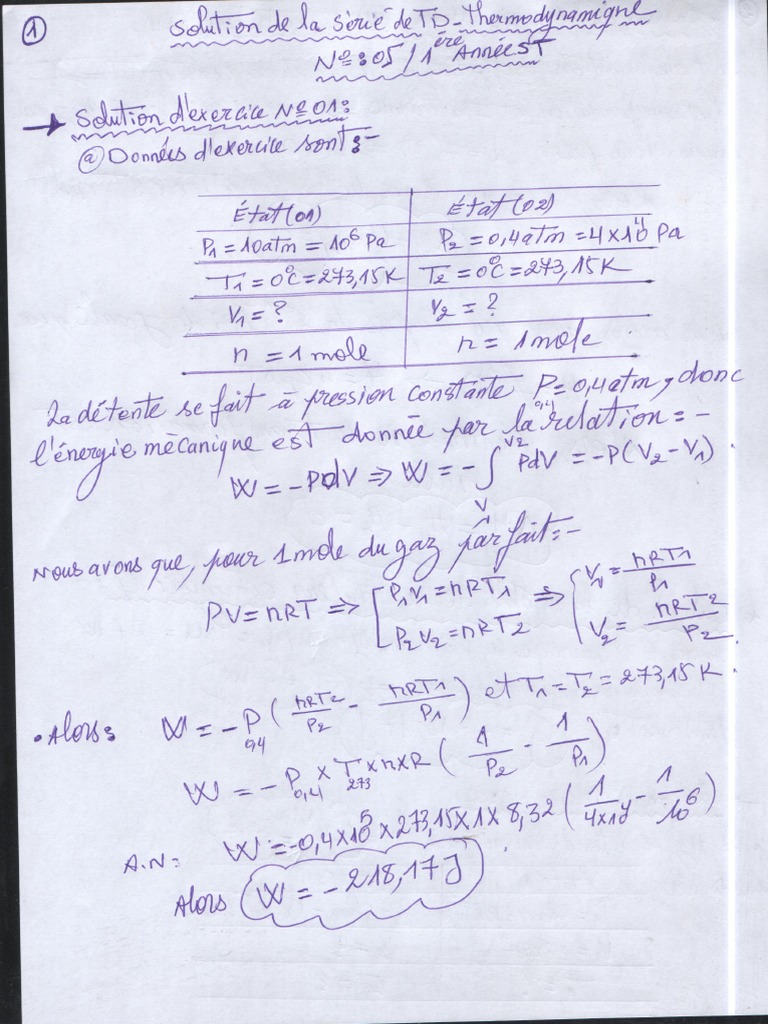 1
Solution de la série de TD-thermodynamique
N°:05/1ère Année ST
→ Solution d'exercice N°01:
ⓐ Données d'exercice sont:-
État(01) | État(02)
P₁ = 10atm = 10⁶ Pa | P₂ = 0,4atm = 4×10⁴ Pa
T₁ = 0°C = 273,15K | T₂ = 0°C = 273,15K
V₁ = ? | V₂ = ?
n = 1 mole | n = 1 mole
La détente se fait à pression constante P = 0,4atm, donc
l'énergie mécanique est donnée par la relation:-
W = -PdV ⇒ W = -∫ PdV = -P(V₂-V₁).
Nous avons que, pour 1 mole du gaz parfait:-
PV = nRT ⇒ [P₁V₁ = nRT₁ ⇒ {V₁ = nRT₁/P₁
P₂V₂ = nRT₂ V₂ = nRT₂/P₂
• Alors: W = -P₀,₄ (nRT₂/P₂ - nRT₁/P₁) et T₁ = T₂ = 273,15K.
W = -P₀,₄ × T₂₇₃ × n × R (1/P₂ - 1/P₁)
A.N: W = -0,4×10⁵ × 273,15 × 1 × 8,32 (1/4×10⁴ - 1/10⁶)
Alors W = -218,17J